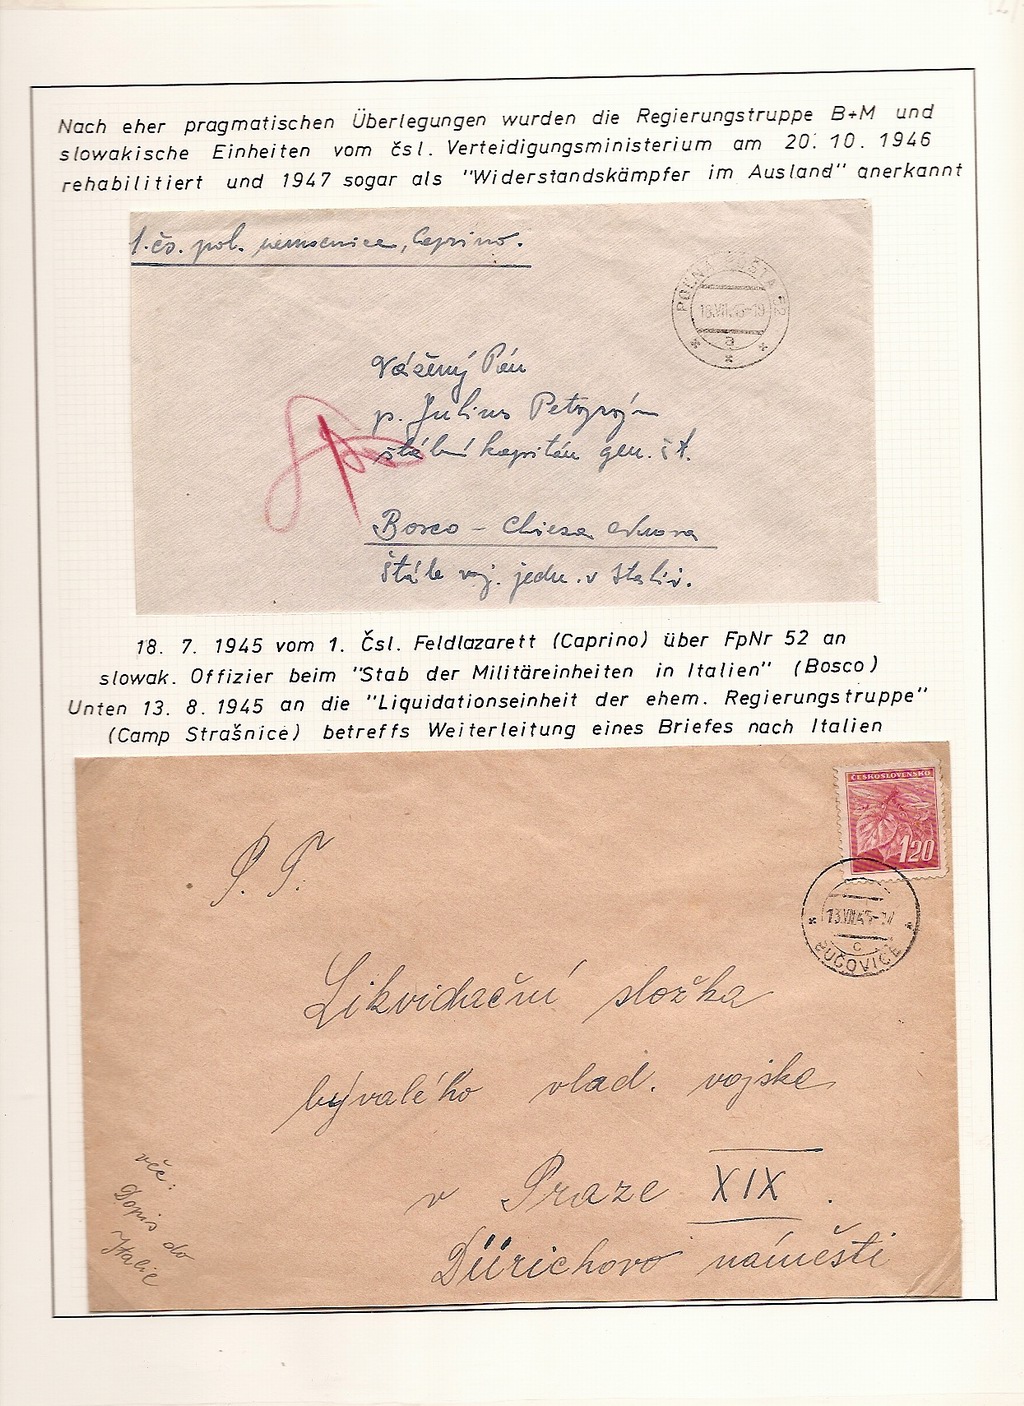 Nach eher pragmatischen Überlegungen wurden die Regierungstruppe B+M und
slowakische Einheiten vom čsl. Verteidigungsministerium am 20. 10. 1946
rehabilitiert und 1947 sogar als "Widerstandskämpfer im Ausland" anerkannt
1. čs. pol. nemocnice, Caprino.
POLNÍ POŠTA 52
18.VII.45-19
a
Vážený Pán
p. Julius
štábní kapitán gen. št.
Bosco - Chiesa
Štáb voj. jedn. v Italii.
18. 7. 1945 vom 1. Čsl. Feldlazarett (Caprino) über FpNr 52 an
slowak. Offizier beim "Stab der Militäreinheiten in Italien" (Bosco)
Unten 13. 8. 1945 an die "Liquidationseinheit der ehem. Regierungstruppe"
(Camp Strašnice) betreffs Weiterleitung eines Briefes nach Italien
ČESKOSLOVENSKO
1.20
P. T.
13.VIII.45
c
BUČOVICE
Likvidační složka
bývalého vlad. vojska
v Praze XIX.
Dürichovo náměstí
věc:
Dopis do
Italie